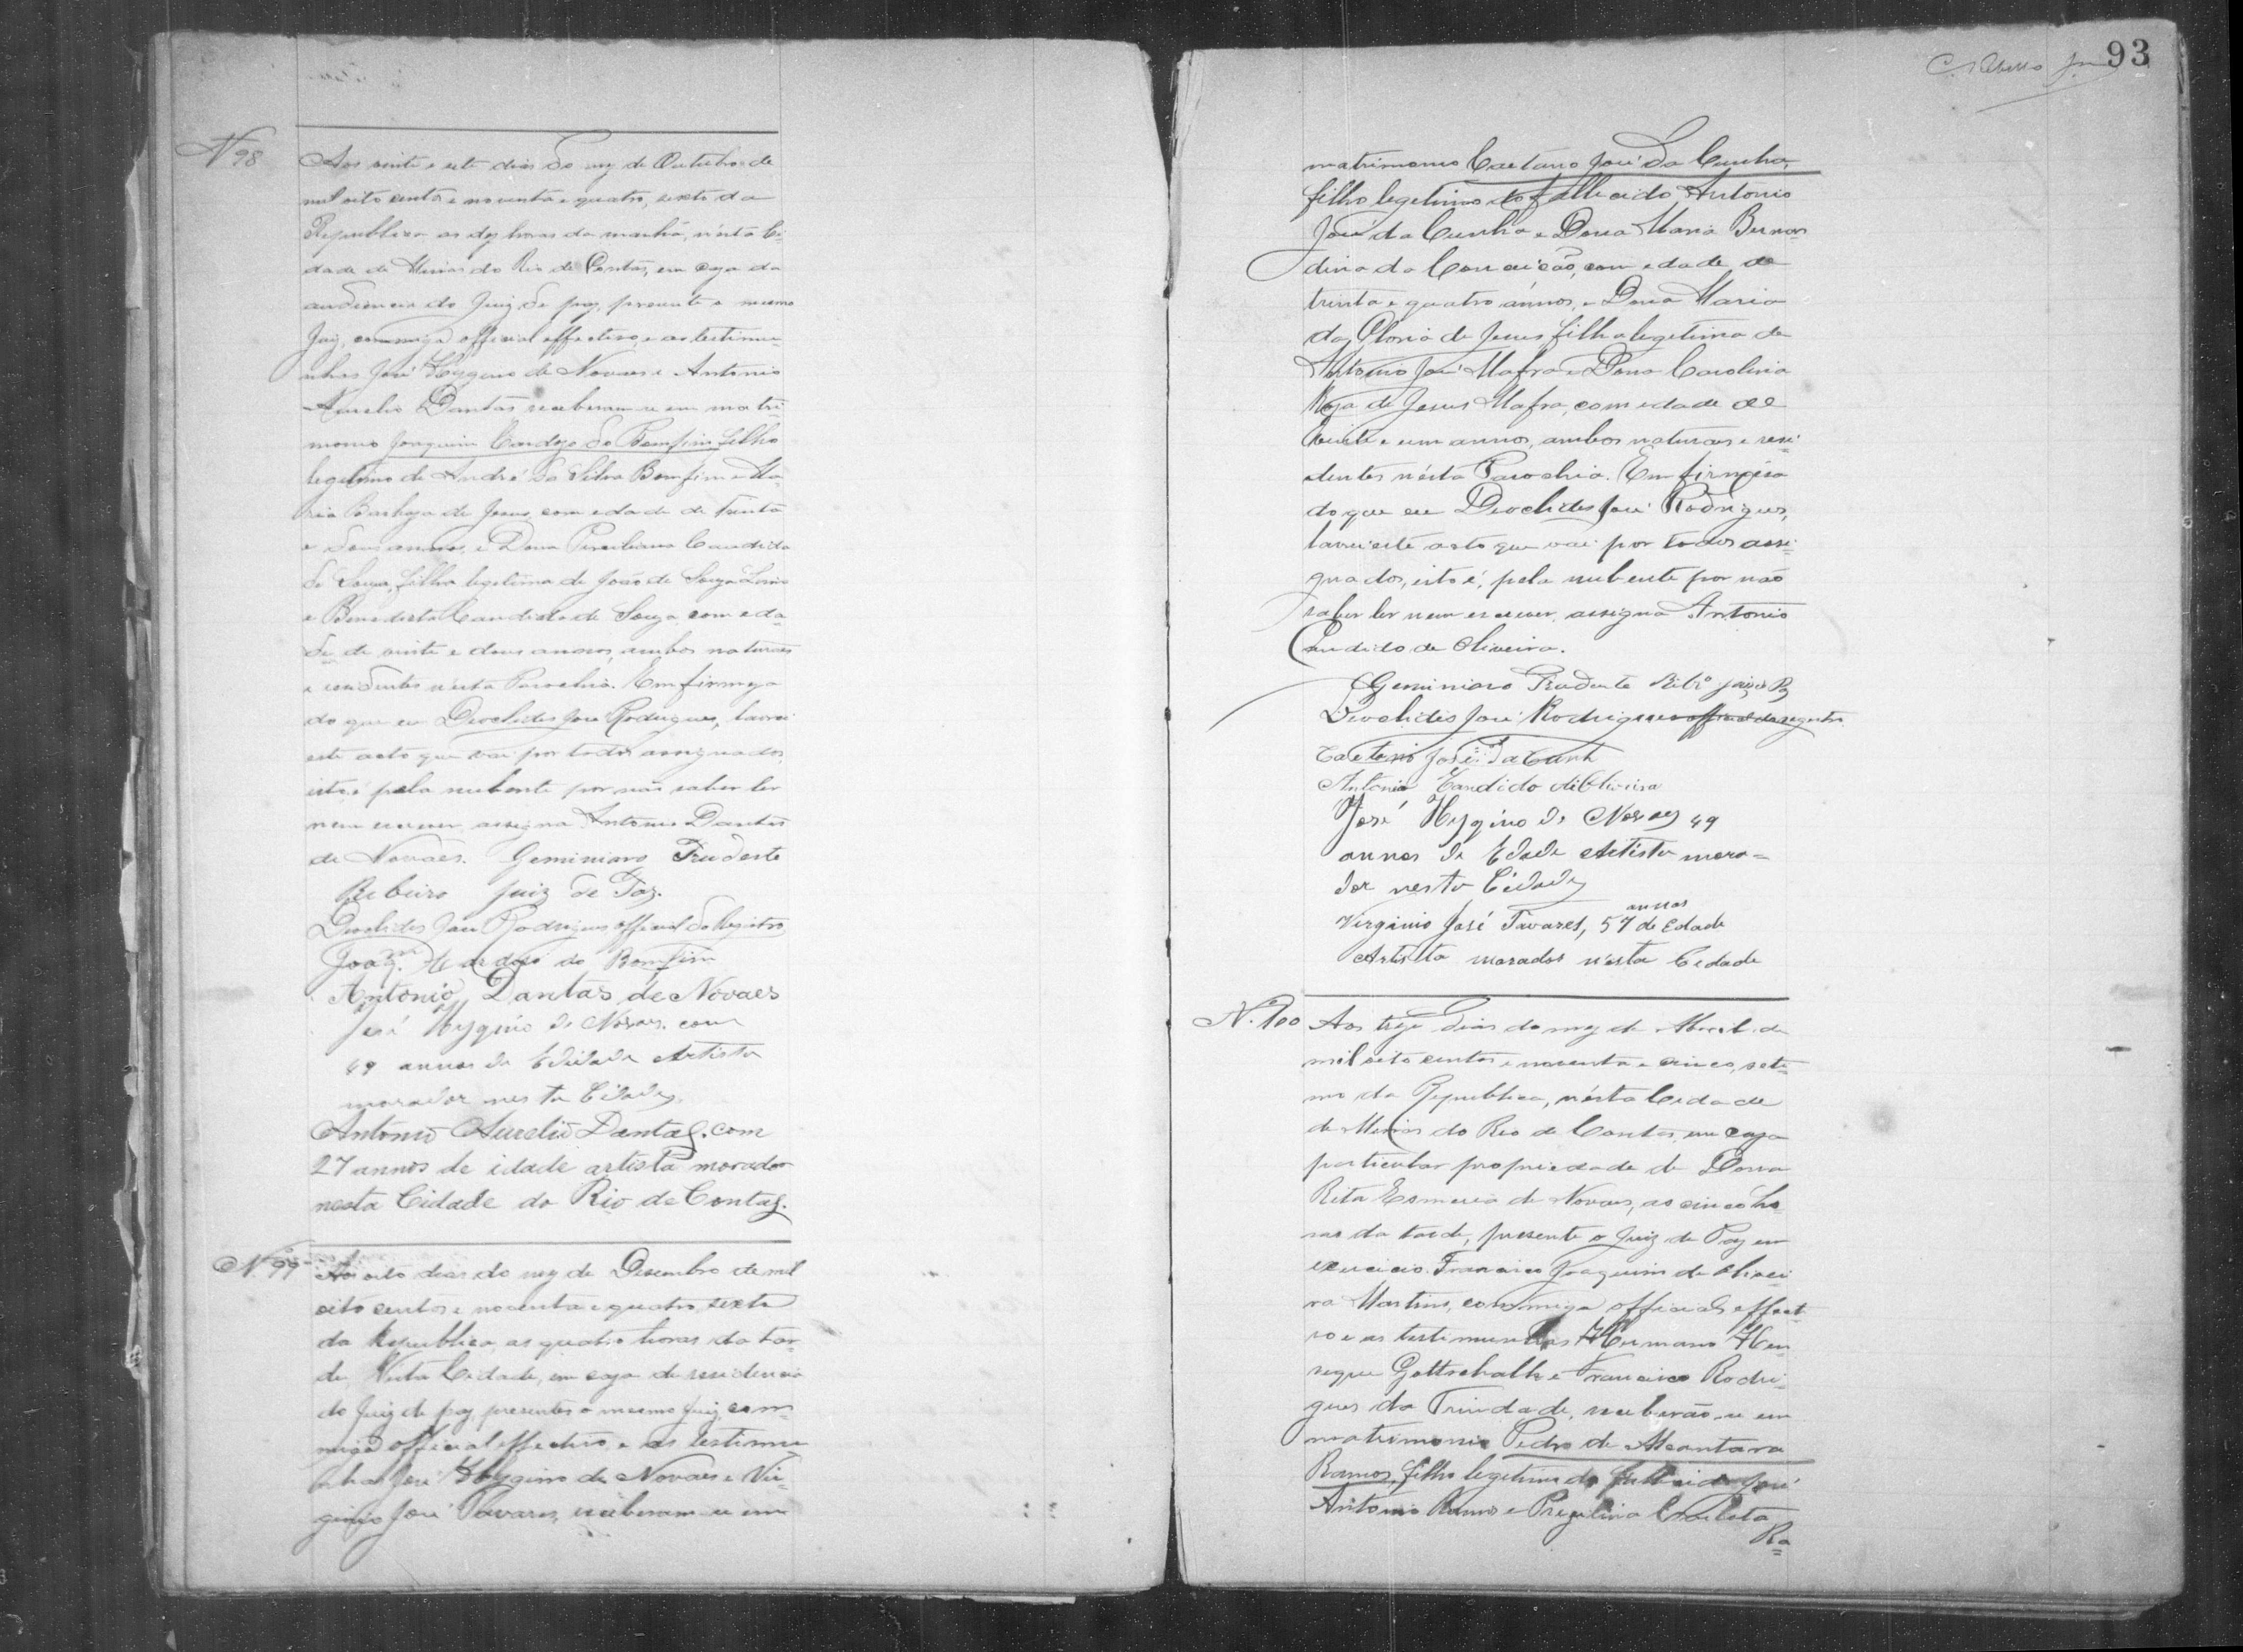 N 98
Aos vinte e sete dias do mez de Outubro de
mil oito centos e noventa e quatro, sexto da
Republica as dez horas da manhã, nésta Ci=
dade de Minas do Rio de Contas, em caza da
audiencia do Juiz de paz, presente o mesmo
Juiz, commigo official effectivo, e as testimu=
nhas José Hygino de Novaes e Antonio
Aurelio Dantas receberam-se em matri=
monio Joaquim Cardozo do Bomfim filho
legitimo de André da Silva Bomfim e Ma=
ria Barboza de Jesus, com edade de trinta
e dous annos, e Dona Candida
de Souza, filha legitima de João de Souza
e Benedicta Candida de Souza, com eda=
de de vinte e dous annos, ambos naturaes
e residentes nésta Parochia. Em firmeza
do que eu Deoclides José Rodrigues, lavrei
este acto que vai por todos assignados,
isto é pela nubente por não saber ler
nem escrever assigna Antonio Dantas
de Novaes. Geminiano Prudente
Ribeiro juiz de Paz.
Deoclides José Rodrigues official do Registro
Joaqm. Cardoso do Bomfim
Antonio Dantas de Novaes
José Hygino de Novaes. com
49 annos de Edade Artista
morador nesta Cidade
Antonio Aurelio Dantas. com
27 annos de idade artista morador
nesta Cidade do Rio de Contas.
N. 99
Aos oito dias do mez de Desembro de mil
oito centos e noventa e quatro, sexto
da Republica, as quatro horas da tar=
de Nesta Cidade, em caza de residencia
do Juiz de paz, presentes o mesmo Juiz, com=
migo official effectivo, e as testimu=
nhas José Hygino de Novaes e Vir=
ginio José Tavares, receberam-se em
93
matrimonio Caetano José da Cunha,
filho legitimo do fallecido Antonio
José da Cunha e Dona Maria Bernar=
dina da Conceição, com edade de
trinta e quatro annos, e Dona Maria
da Gloria de Jesus, filha legitima de
Antonio José Mafra e Dona Carolina
Roza de Jesus Mafra, com edade de
vinte e um annos, ambos naturaes e resi=
dentes nésta Parochia. Em firmesa
do que eu Deoclides José Rodrigues,
lavrei este acto que vai por todos assi=
gnados, isto é, pela nubente por não
saber ler nem escrever, assigna Antonio
Candido de Oliveira.
Geminiano Prudente Ribro juiz de Pz
Deoclides José Rodrigues official do registro
Caetano José da Cunh
Antonio Candido de Oliveira
José Hygino de Novaes 49
annos de Edade Artista mora=
dor nesta Cidade
Virginio José Tavares, 57 annos de Edade
Artista morador nésta Cedade
N. 100
Aos treze dias do mez de Abril de
mil oito centos e noventa e cinco, seti=
mo da Republica, nésta Cidade
de Minas do Rio de Contas, em caza
particular propriedade de Dona
Rita Esmeria de Novaes, as cinco ho=
ras da tarde, presente o Juiz de Paz em
exercicio Francisco Joaquim de Olivei=
ra Martins, commigo official effecti=
vo e as testimunhas Hermano Hen=
rique Gottschalk e Francisco Rodri=
gues da Trindade, receberão-se em
matrimonio Pedro de Alcantara
Ramos, filho legitimo do fallecido José
Antonio Ramos e
Ra=